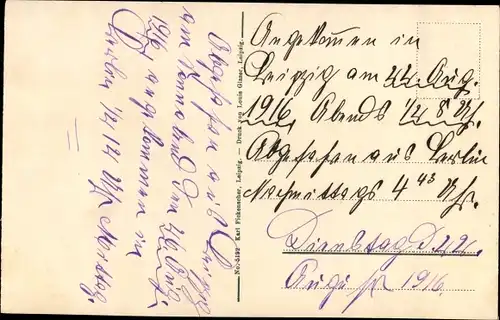 Angekommen in
Leipzig am 22. Aug.
1916, Abends 1/2 8 Uh.
Abgefahren aus Berlin
Nachmittags 4 45 Uhr.
Dienstag d. 22.
August 1916.
Abgefahren aus Leipzig
am Sonnabend den 26. Aug.
1916
angekommen in
Berlin 1/2 Uhr Mittag.
Karl Pickenacher, Leipzig. — Druck von Louis Glaser, Leipzig.